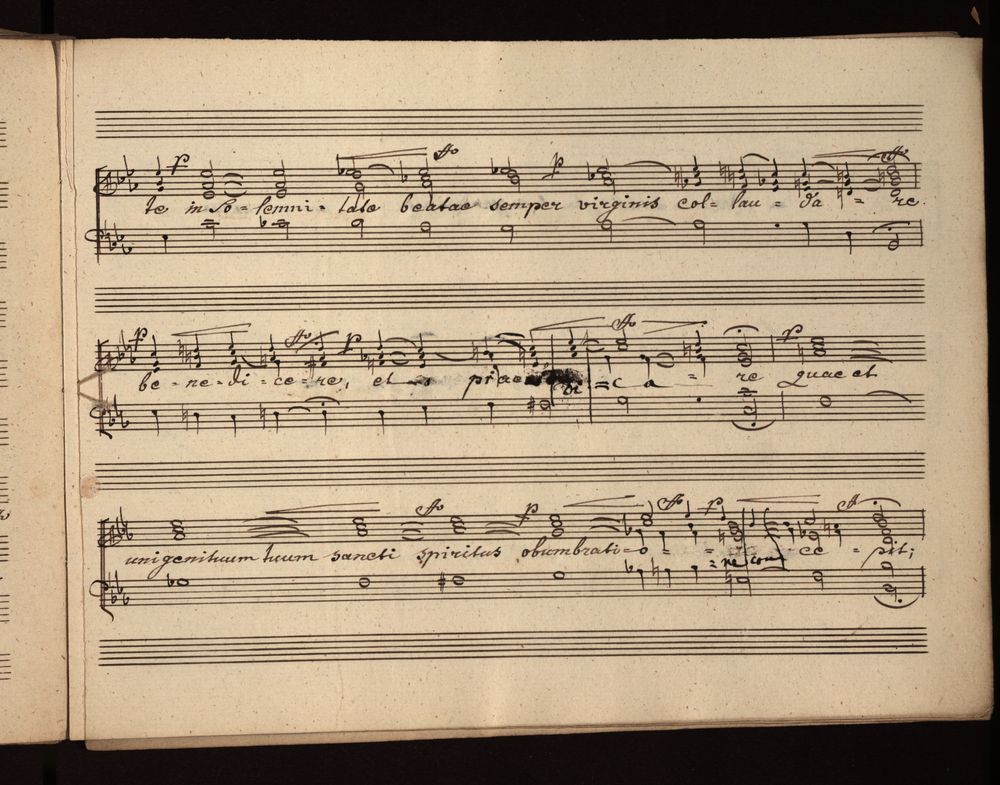 te in So-lemni-tate beatae semper virginis col-lau-da-re.
be-ne-di-ce-re, et prae di = c a - re quae et
unigenituum tuum sancti spiritus obumbrati-o - = ne conc ce - pit;